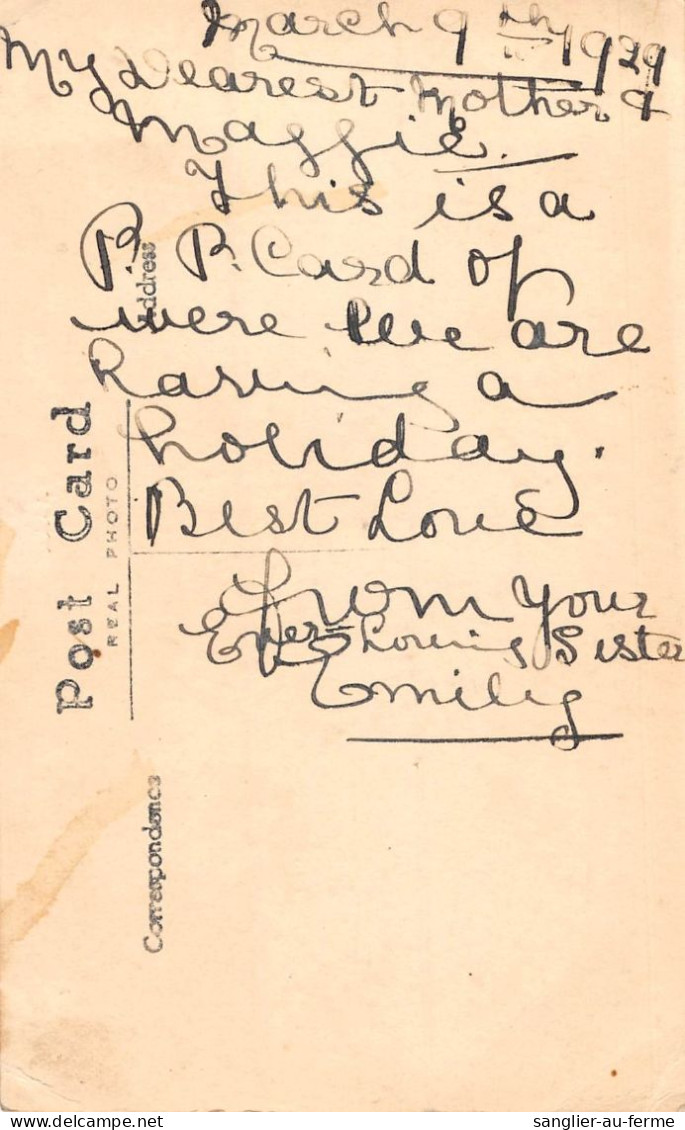 March 9th 1929
My Dearest Mother &
Maggie.
This is a
P. P. Card of
were we are
having a
holiday.
Best Love
from your
Ever Loving Sister
Emily
Post Card
REAL PHOTO
Address
Correspondence
delcampe.net
sanglier-au-ferme